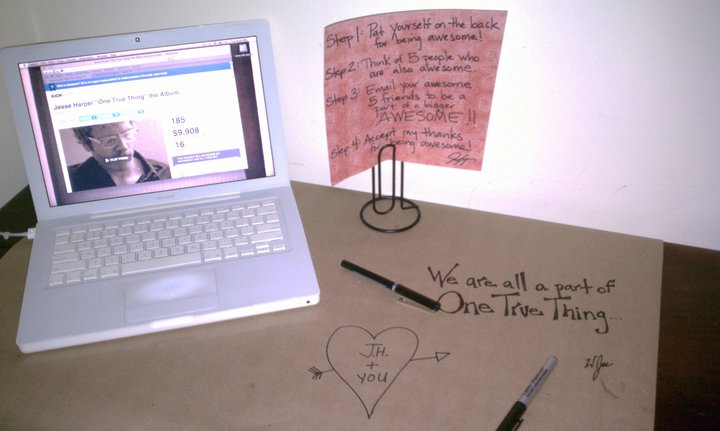 Jesse Harper "One True Thing" the Album
185
$9,908
16
PLAY VIDEO
MacBook
Step 1: Pat yourself on the back
for being awesome!
Step 2: Think of 5 people who
are also awesome.
Step 3: Email your awesome
5 friends to be a
part of a bigger
AWESOME!!
Step 4: Accept my thanks
for being awesome!
We are all a part of
One True Thing...
J.H.
+
YOU